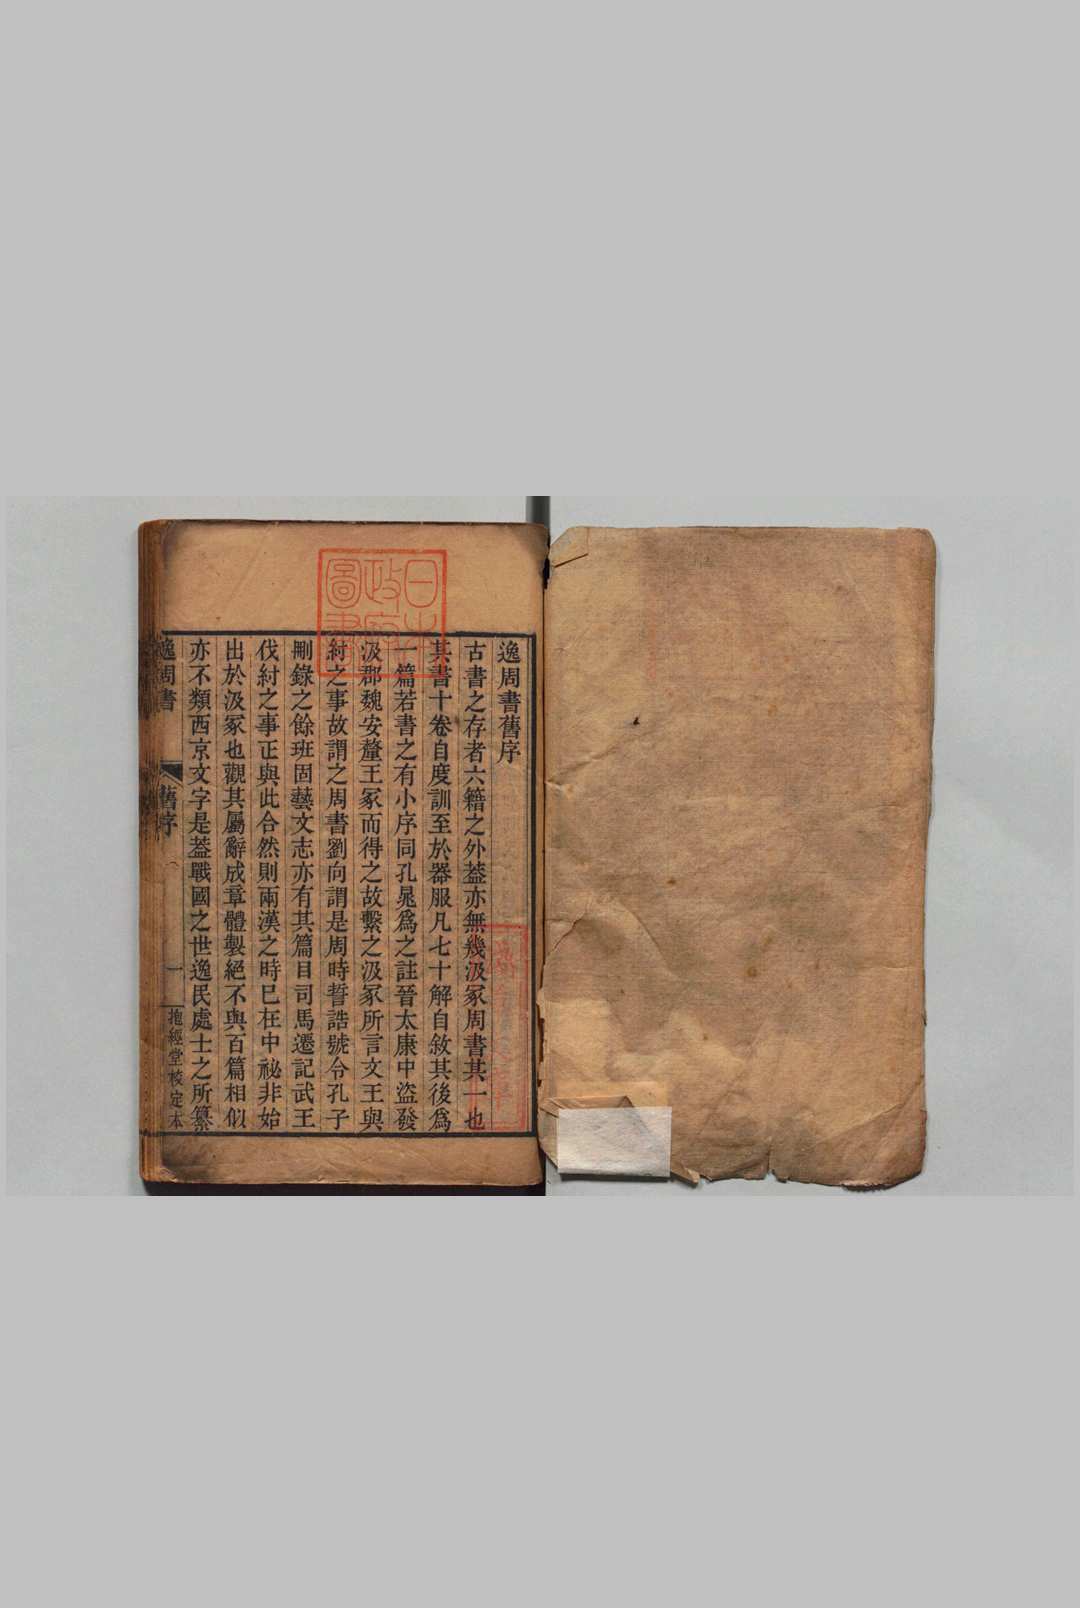 逸周書舊序
古書之存者六籍之外葢亦無幾汲冢周書其一也
其書十卷自度訓至於器服凡七十解自敘其後爲
一篇若書之有小序同孔晁爲之註晉太康中盜發
汲郡魏安釐王冢而得之故繫之汲冢所言文王與
紂之事故謂之周書劉向謂是周時誓誥號令孔子
刪錄之餘班固藝文志亦有其篇目司馬遷記武王
伐紂之事正與此合然則兩漢之時已在中祕非始
出於汲冢也觀其屬辭成章體製絕不與百篇相似
亦不類西京文字是葢戰國之世逸民處士之所纂
逸周書 舊序 一 抱經堂校定本
日本政府圖書